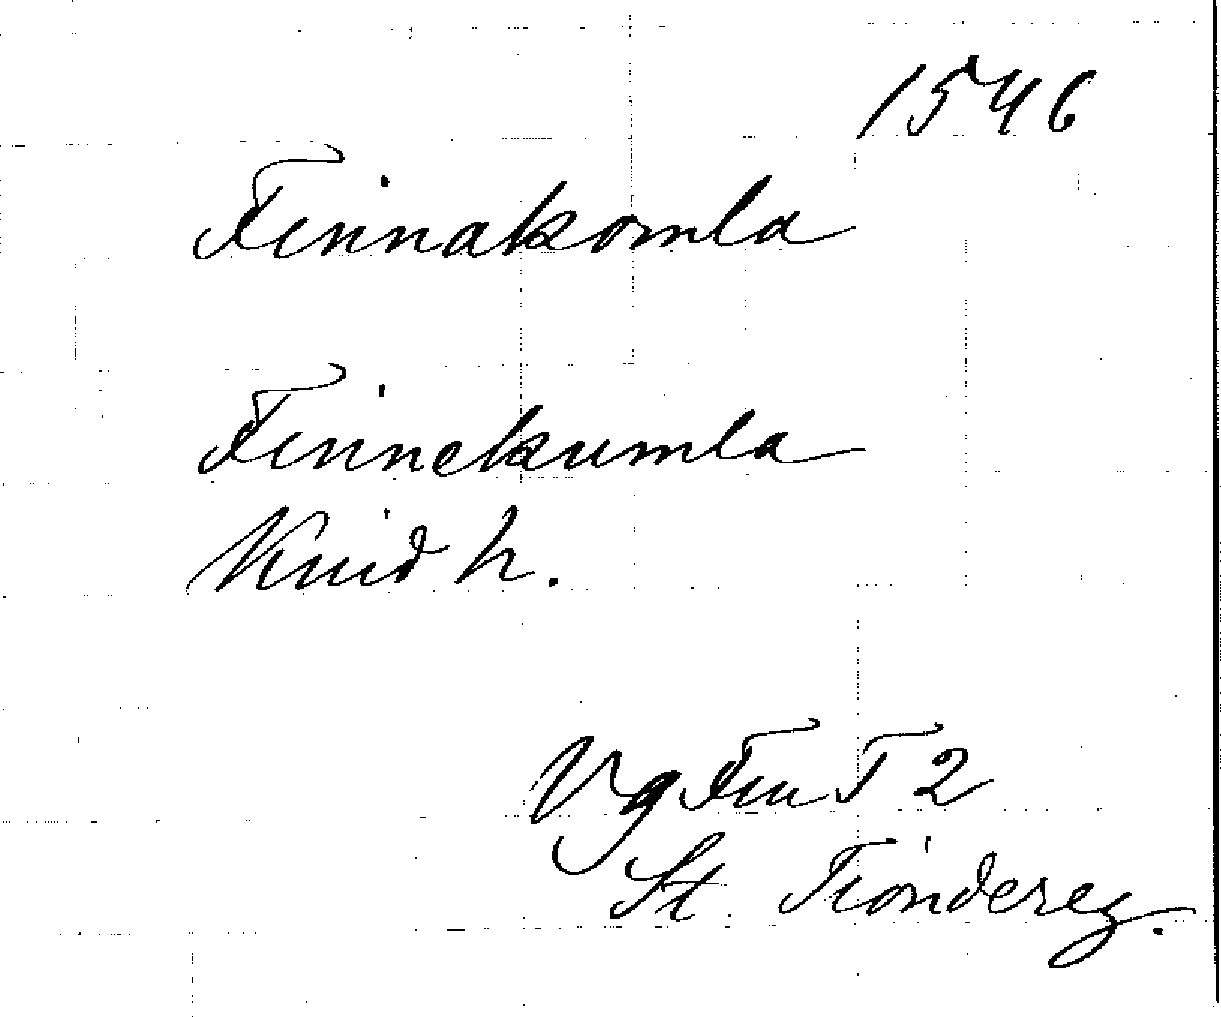 1546
Finnakomla
Finnekumla
Kind h.
Vg Fin T 2
St. Tiondereg.